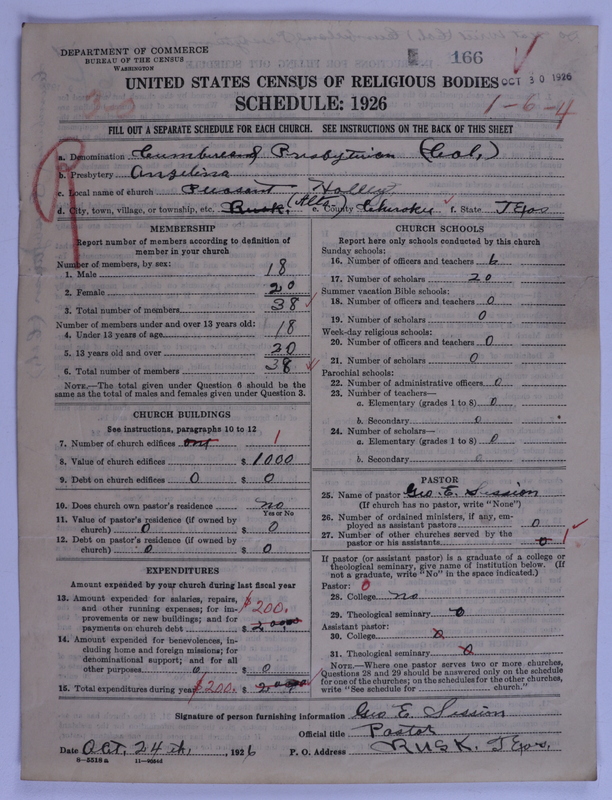 DEPARTMENT OF COMMERCE
BUREAU OF THE CENSUS
WASHINGTON
166
UNITED STATES CENSUS OF RELIGIOUS BODIES
OCT 30 1926
SCHEDULE: 1926
3-3
1-6-4
FILL OUT A SEPARATE SCHEDULE FOR EACH CHURCH. SEE INSTRUCTIONS ON THE BACK OF THIS SHEET
a. Denomination Cumberland Presbyterian (Col.)
b. Presbytery Angelina
c. Local name of church Pleasant Holley
d. City, town, village, or township, etc. Rusk. (Alto) e. County Cherokee f. State Texas
MEMBERSHIP
Report number of members according to definition of
member in your church
Number of members, by sex:
1. Male 18
2. Female 20
3. Total number of members 38
Number of members under and over 13 years old:
4. Under 13 years of age 18
5. 13 years old and over 20
6. Total number of members 38
NOTE.—The total given under Question 6 should be the
same as the total of males and females given under Question 3.
CHURCH BUILDINGS
See instructions, paragraphs 10 to 12
7. Number of church edifices one 1
8. Value of church edifices $ 1000
9. Debt on church edifices 0 $ 0
10. Does church own pastor's residence no
Yes or No
11. Value of pastor's residence (if owned by
church) 0 $ 0
12. Debt on pastor's residence (if owned by
church) 0 $ 0
EXPENDITURES
Amount expended by your church during last fiscal year
13. Amount expended for salaries, repairs,
and other running expenses; for im-
provements or new buildings; and for
payments on church debt $200. $
14. Amount expended for benevolences, in-
cluding home and foreign missions; for
denominational support; and for all
other purposes 0 $ 0
15. Total expenditures during year $200. $
CHURCH SCHOOLS
Report here only schools conducted by this church
Sunday schools:
16. Number of officers and teachers 6
17. Number of scholars 20
Summer vacation Bible schools:
18. Number of officers and teachers 0
19. Number of scholars 0
Week-day religious schools:
20. Number of officers and teachers 0
21. Number of scholars 0
Parochial schools:
22. Number of administrative officers 0
23. Number of teachers—
a. Elementary (grades 1 to 8) 0
b. Secondary 0
24. Number of scholars—
a. Elementary (grades 1 to 8) 0
b. Secondary 0
PASTOR
25. Name of pastor Geo. E. Session
(If church has no pastor, write "None")
26. Number of ordained ministers, if any, em-
ployed as assistant pastors 0
27. Number of other churches served by the
pastor or his assistants 0 1
If pastor (or assistant pastor) is a graduate of a college or
theological seminary, give name of institution below. (If
not a graduate, write "No" in the space indicated.)
Pastor: 0
28. College no
29. Theological seminary 0
Assistant pastor:
30. College 0
31. Theological seminary 0
NOTE.—Where one pastor serves two or more churches,
Questions 28 and 29 should be answered only on the schedule
for one of the churches; on the schedules for the other churches,
write "See schedule for church."
Signature of person furnishing information Geo E. Session
Official title Pastor
Date Oct, 24 th, 1926 P. O. Address RUSK. Texas.
8—5518a 11—9064d